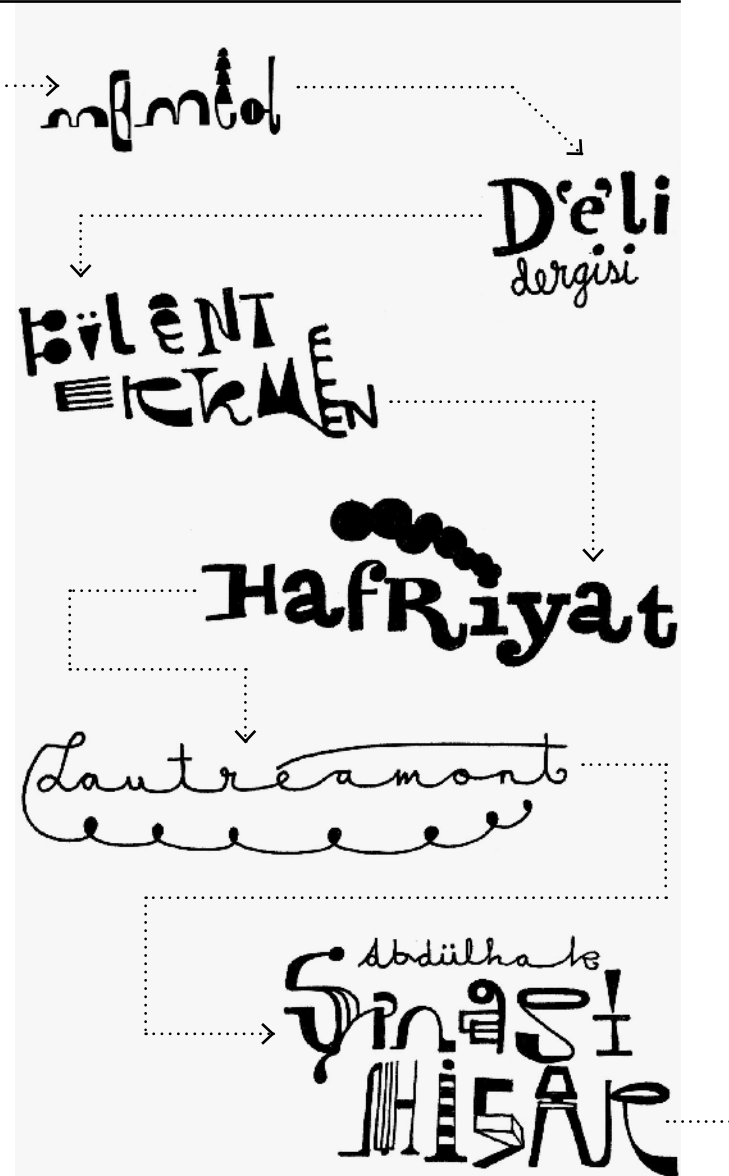 mEmed
Deli
dergisi
BüLeNT
ERKMEN
HafRiyat
Lautréamont
Abdülhak
Şinasi
HiSAR